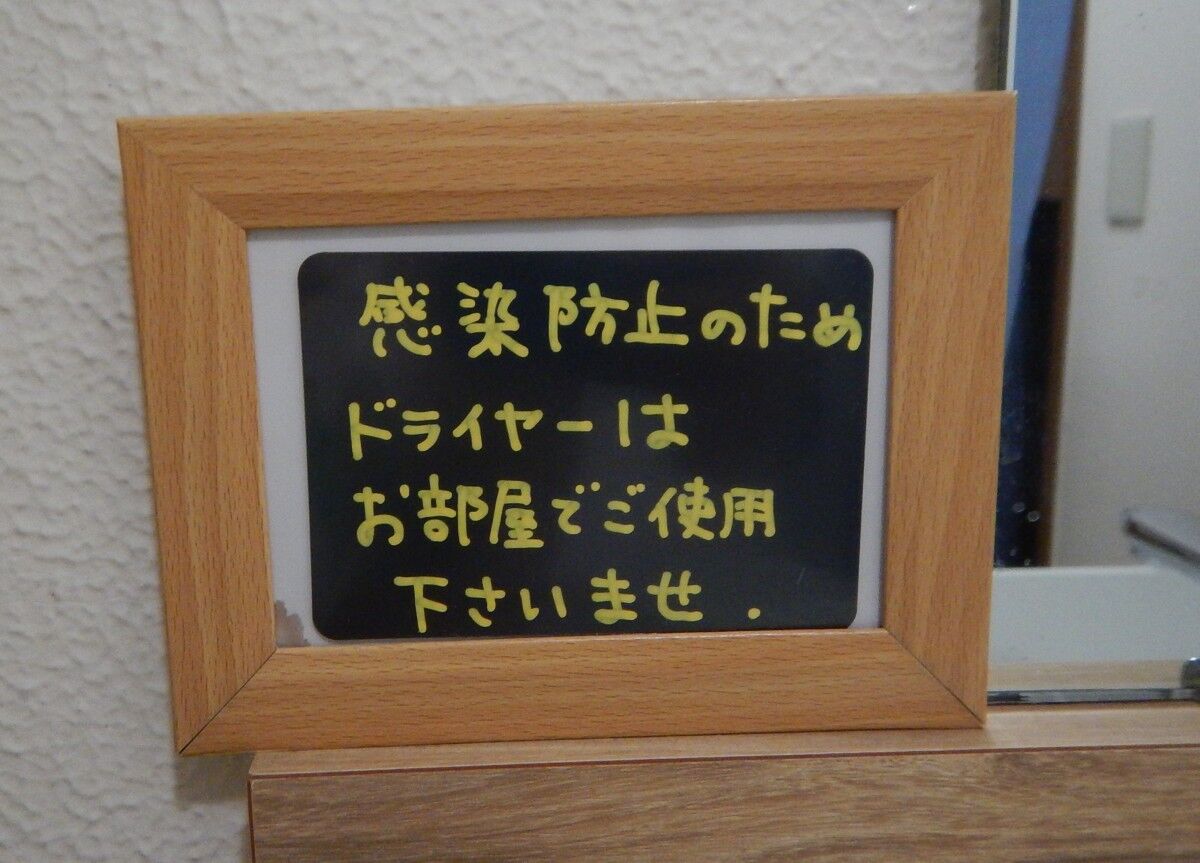 感染防止のため
ドライヤーは
お部屋でご使用
下さいませ.